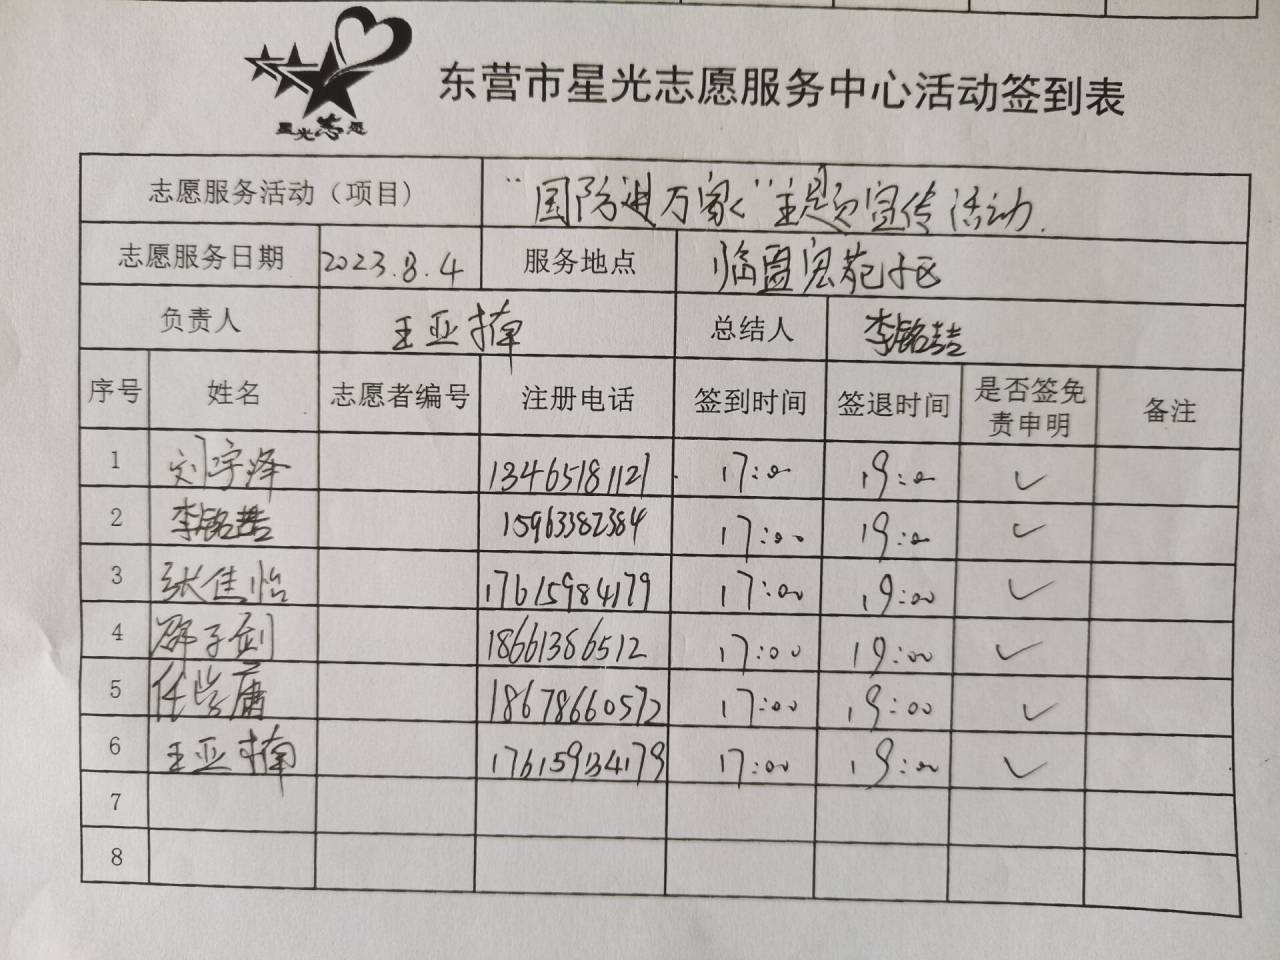 星光志愿
东营市星光志愿服务中心活动签到表
志愿服务活动（项目） “国防进万家”主题宣传活动.
志愿服务日期 2023.8.4 服务地点 临盟宏苑小区
负责人 王亚楠 总结人 李铭喆
序号 姓名 志愿者编号 注册电话 签到时间 签退时间 是否签免责申明 备注
1 刘宇泽 13465181121 17:00 19:00 ✓
2 李铭喆 15963382384 17:00 19:00 ✓
3 张佳怡 17615984179 17:00 19:00 ✓
4 邵子剑 18661386512 17:00 19:00 ✓
5 任 18678660572 17:00 19:00 ✓
6 王亚楠 17615934179 17:00 19:00 ✓
7
8